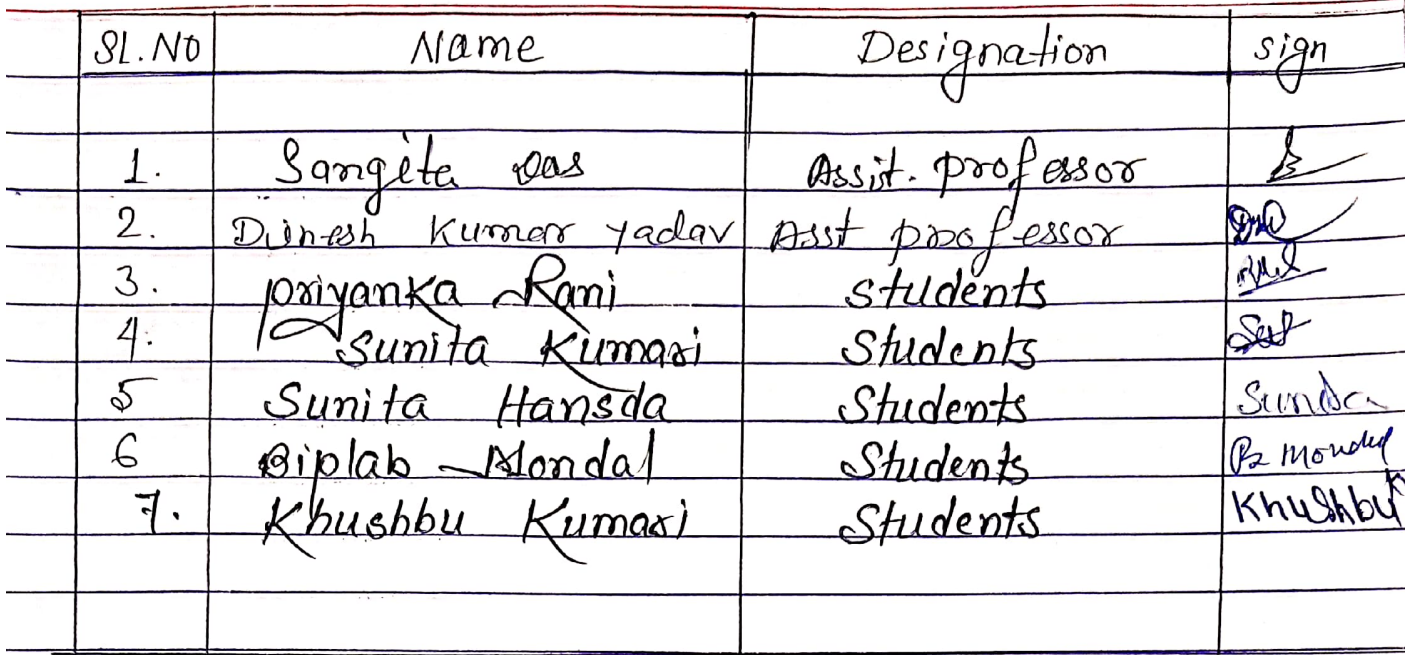 SL.NO Name Designation sign
1. Sangita Das Assit. professor
2. Dinesh Kumar Yadav Asst professor
3. Priyanka Rani Students
4. Sunita Kumari Students
5 Sunita Hansda Students
6 Biplab Mondal Students
7. Khushbu Kumari Students Khushbu